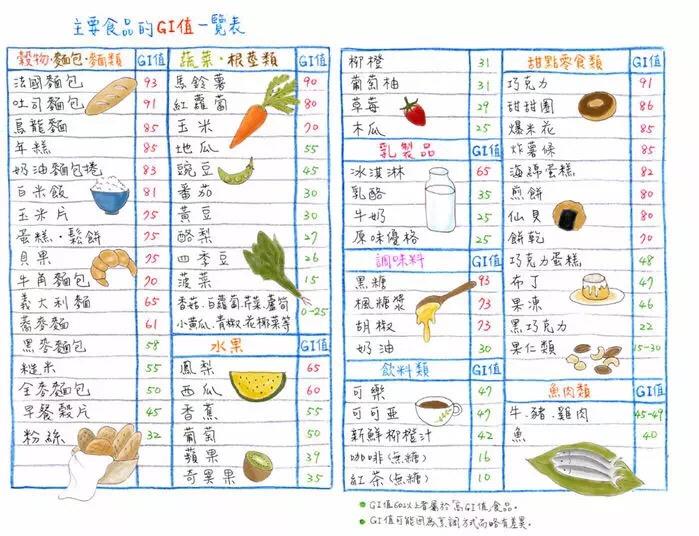 主要食品的GI值一覽表
穀物·麵包·麵類 GI值
法國麵包 93
吐司麵包 91
烏龍麵 85
年糕 85
奶油麵包捲 83
白米飯 81
玉米片 75
蛋糕·鬆餅 75
貝果 75
牛角麵包 70
義大利麵 65
蕎麥麵 61
黑麥麵包 58
糙米 55
全麥麵包 50
早餐穀片 45
粉絲 32
蔬菜·根莖類 GI值
馬鈴薯 90
紅蘿蔔 80
玉米 70
地瓜 55
豌豆 45
番茄 30
黃豆 30
酪梨 27
四季豆 26
菠菜 15
香菇.白蘿蔔.芹菜.蘆筍
小黃瓜.青椒.花椰菜等 0-25
水果 GI值
鳳梨 65
西瓜 60
香蕉 55
葡萄 50
蘋果 39
奇異果 35
柳橙 31
葡萄柚 31
草莓 29
木瓜 25
乳製品 GI值
冰淇淋 65
乳酪 35
牛奶 25
原味優格 25
調味料 GI值
黑糖 93
楓糖漿 73
胡椒 73
奶油 30
飲料類 GI值
可樂 47
可可亞 47
新鮮柳橙汁 42
咖啡(無糖) 16
紅茶(無糖) 10
甜點零食類 GI值
巧克力 91
甜甜圈 86
爆米花 85
炸薯條 85
海綿蛋糕 82
煎餅 80
仙貝 80
餅乾 70
巧克力蛋糕 48
布丁 47
果凍 46
黑巧克力 22
果仁類 15-30
魚肉類 GI值
牛.豬.雞肉 45-49
魚 40
GI值60以上者屬於「高GI值」食品。
GI值可能因為烹調方式而略有差異。